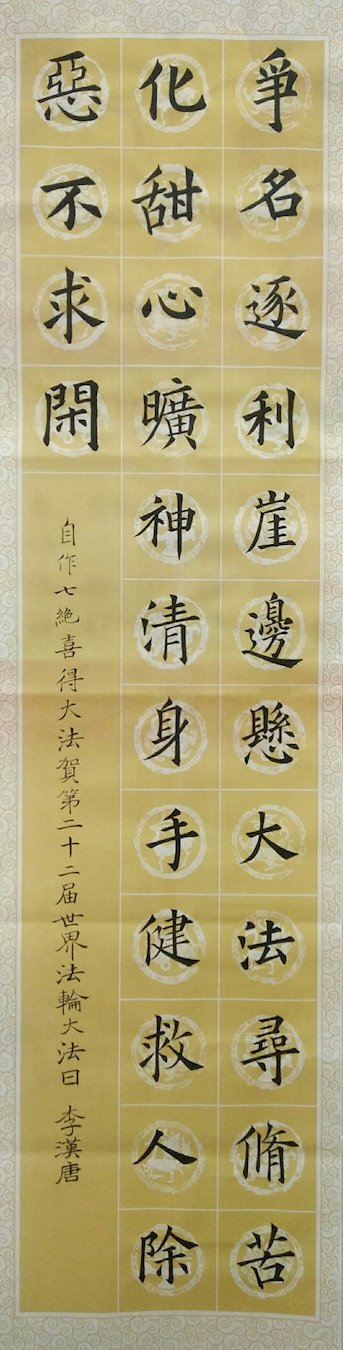 爭名逐利崖邊懸大法尋脩苦
化甜心曠神清身手健救人除
惡不求閑
自作七絶喜得大法賀第二十二届世界法輪大法日 李漢唐